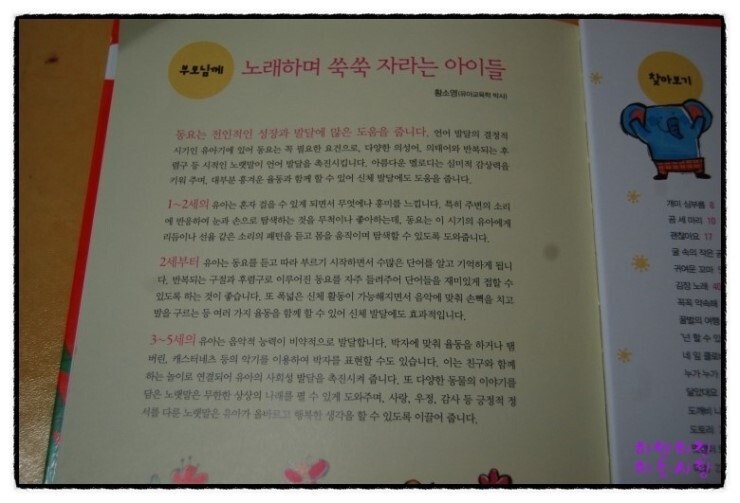 부모님께
노래하며 쑥쑥 자라는 아이들
황소영(유아교육학 박사)
동요는 전인적인 성장과 발달에 많은 도움을 줍니다. 언어 발달의 결정적
시기인 유아기에 있어 동요는 꼭 필요한 요건으로, 다양한 의성어, 의태어와 반복되는 후
렴구 등 시적인 노랫말이 언어 발달을 촉진시킵니다. 아름다운 멜로디는 심미적 감상력을
키워 주며, 대부분 흥겨운 율동과 함께 할 수 있어 신체 발달에도 도움을 줍니다.
1~2세의 유아는 혼자 걸을 수 있게 되면서 무엇에나 흥미를 느낍니다. 특히 주변의 소리
에 반응하여 눈과 손으로 탐색하는 것을 무척이나 좋아하는데, 동요는 이 시기의 유아에게
리듬이나 선율 같은 소리의 패턴을 듣고 몸을 움직이며 탐색할 수 있도록 도와줍니다.
2세부터 유아는 동요를 듣고 따라 부르기 시작하면서 수많은 단어를 알고 기억하게 됩니
다. 반복되는 구절과 후렴구로 이루어진 동요를 자주 들려주어 단어들을 재미있게 접할 수
있도록 하는 것이 좋습니다. 또 폭넓은 신체 활동이 가능해지면서 음악에 맞춰 손뼉을 치고
발을 구르는 등 여러 가지 율동을 함께 할 수 있어 신체 발달에도 효과적입니다.
3~5세의 유아는 음악적 능력이 비약적으로 발달합니다. 박자에 맞춰 율동을 하거나 탬
버린, 캐스터네츠 등의 악기를 이용하여 박자를 표현할 수도 있습니다. 이는 친구와 함께
하는 놀이로 연결되어 유아의 사회성 발달을 촉진시켜 줍니다. 또 다양한 동물의 이야기를
담은 노랫말은 무한한 상상의 나래를 펼 수 있게 도와주며, 사랑, 우정, 감사 등 긍정적 정
서를 다룬 노랫말은 유아가 올바르고 행복한 생각을 할 수 있도록 이끌어 줍니다.
찾아보기
개미 심부름 8
곰 세 마리 10
괜찮아요 17
굴 속의 작은
귀여운 꼬마
김장 노래 40
꼭꼭 약속해
꿀벌의 여행
'넌 할 수 있
네 잎 클로
누가 누가
닮았대요
도깨비
도토리